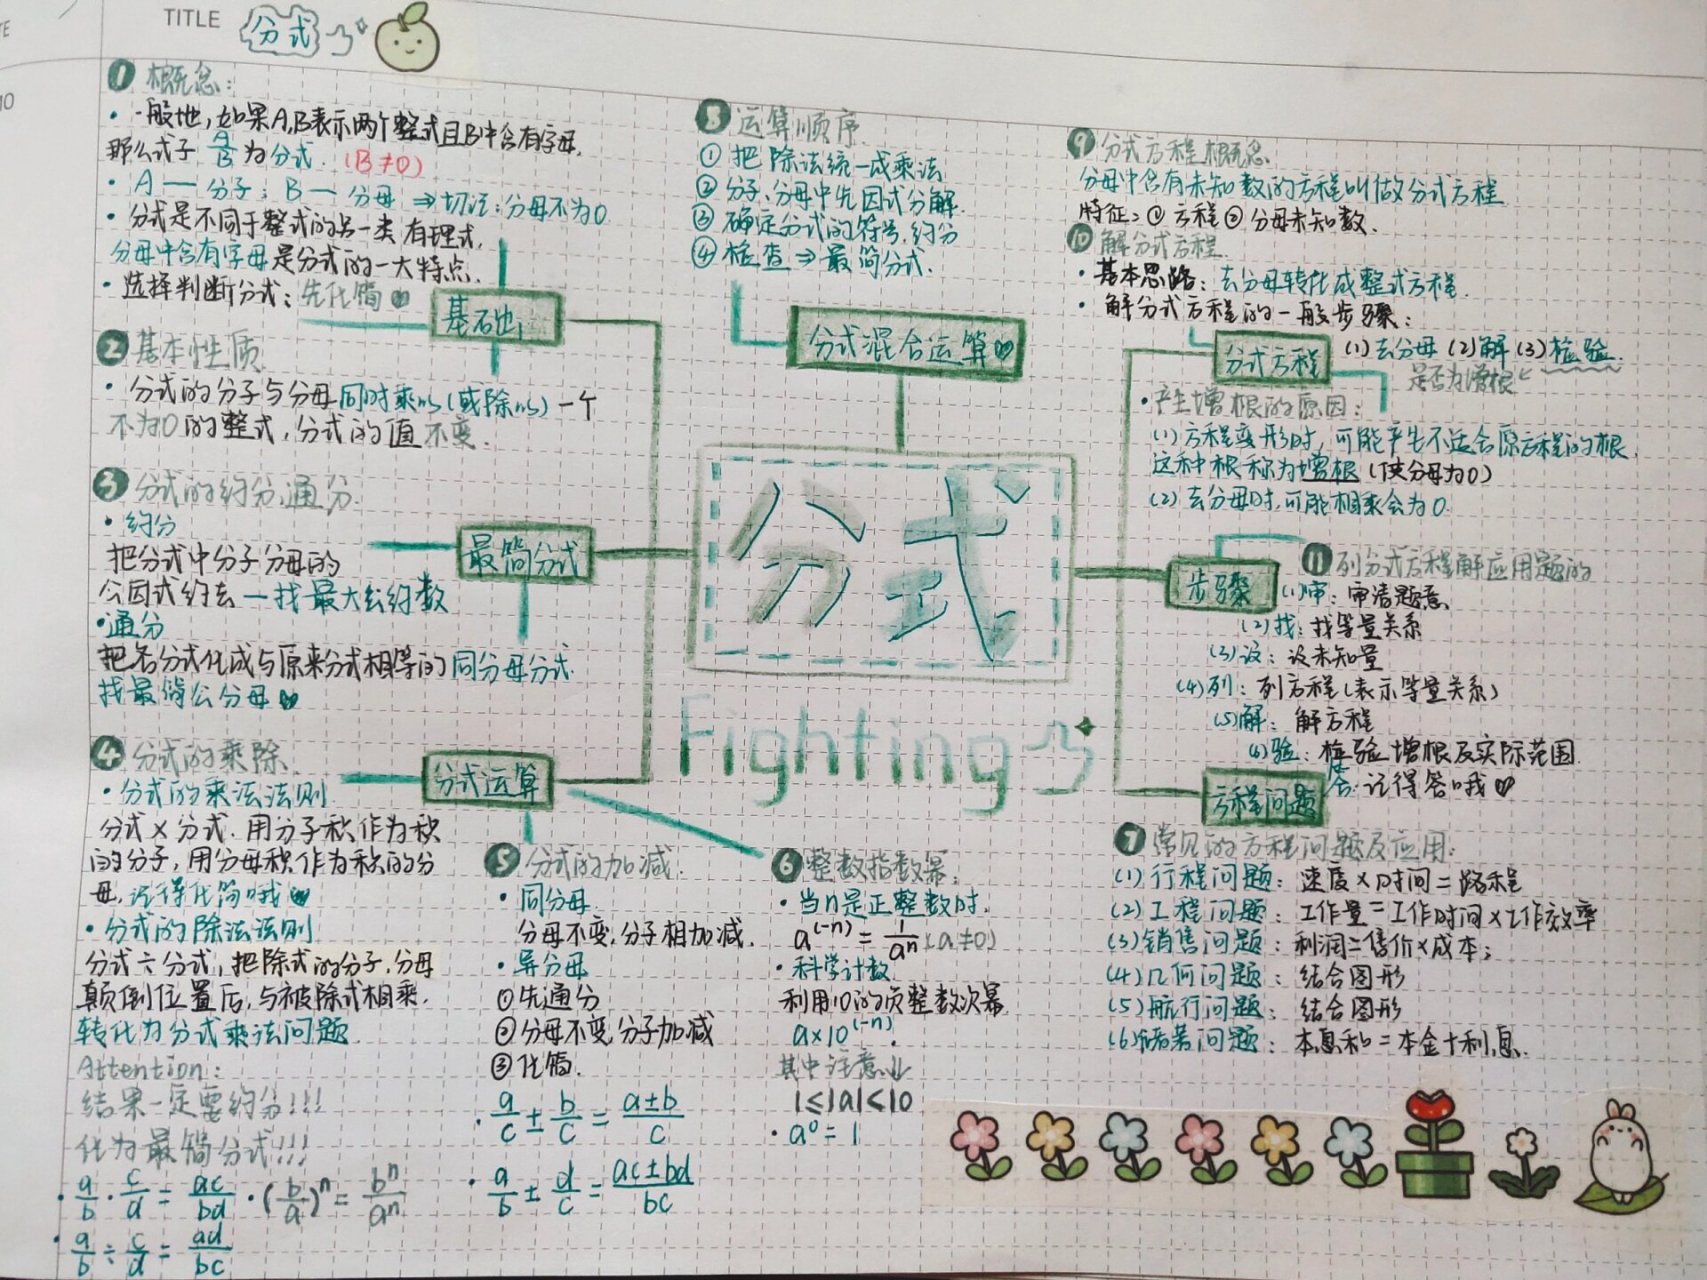 TITLE 分式
1 概念：
· 一般地，如果A,B表示两个整式且B中含有字母,
那么式子 A/B 为分式. (B≠0)
· A — 分子；B — 分母 ⇒切记:分母不为0
· 分式是不同于整式的另一类有理式,
分母中含有字母是分式的一大特点.
· 选择判断分式：先化简
基础
2 基本性质
· 分式的分子与分母同时乘以(或除以)一个
不为0的整式，分式的值不变.
3 分式的约分.通分
· 约分
把分式中分子分母的
公因式约去—找最大公约数
· 通分
把各分式化成与原来分式相等的同分母分式.
找最简公分母
最简分式
4 分式的乘除
· 分式的乘法法则
分式×分式. 用分子积作为积
的分子，用分母积作为积的分
母,记得化简哦
· 分式的除法法则
分式÷分式，把除式的分子,分母
颠倒位置后,与被除式相乘.
转化为分式乘法问题
Attention：
结果一定要约分!!!
化为最简分式!!!
· a/b · c/d = ac/bd · (b/a)ⁿ = bⁿ/aⁿ
· a/b ÷ c/d = ad/bc
分式运算
5 分式的加减.
· 同分母
分母不变,分子相加减.
· 异分母
①先通分
②分母不变,分子加减
③化简.
· a/c ± b/c = a±b/c
· a/b ± d/c = ac±bd/bc
6 整数指数幂：
· 当n是正整数时.
a^(-n) = 1/aⁿ (a≠0)
· 科学计数
利用10的负整数次幂
a×10^(-n)
其中注意↓
1≤|a|<10
· a⁰=1
8 运算顺序
① 把除法统一成乘法
② 分子、分母中先因式分解.
③ 确定分式的符号,约分
④ 检查⇒最简分式.
分式混合运算
分式
Fighting
9 分式方程概念
分母中含有未知数的方程叫做分式方程
特征：① 方程 ② 分母未知数.
10 解分式方程
· 基本思路：去分母转化成整式方程.
· 解分式方程的一般步骤：
分式方程 (1)去分母 (2)解 (3)检验.
是否为增根
· 产生增根的原因：
(1)方程变形时，可能产生不适合原方程的根.
这种根称为增根(使分母为0)
(2)去分母时,可能相乘会为0.
步骤
11 列分式方程解应用题的
(1)审：审清题意
(2)找：找等量关系
(3)设：设未知量
(4)列：列方程(表示等量关系)
(5)解：解方程
(6)验：检验增根及实际范围.
答:记得答哦
方程问题
7 常见的方程问题及应用:
(1)行程问题：速度×时间=路程
(2)工程问题：工作量=工作时间×工作效率
(3)销售问题：利润=售价×成本；
(4)几何问题：结合图形
(5)航行问题：结合图形
(6)储蓄问题：本息和=本金+利息.